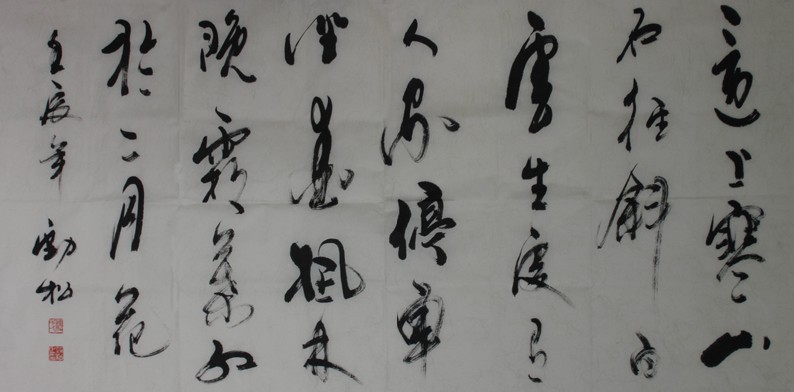 遠上寒山
石徑斜白
雲生處有
人家停車
坐愛楓林
晚霜葉紅
於二月花
壬辰年 勁松